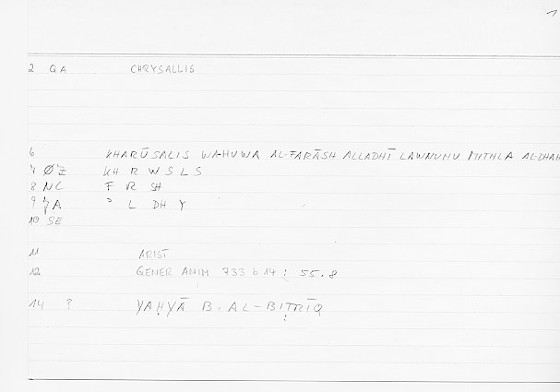 1
2 QA CHRYSALLIS
6 KHARŪSALIS WA-HUWA AL-FARĀSH ALLADHĪ LAWNUHU MITHLA AL-DHAH
7 ØZ KH R W S L S
8 NC F R SH
9 ʾ L DH Y
10 SE
11 ARIST
12 GENER ANIM 733 b 14 : 55.8
14 ? YAḤYĀ B. AL-BIṬRĪQ